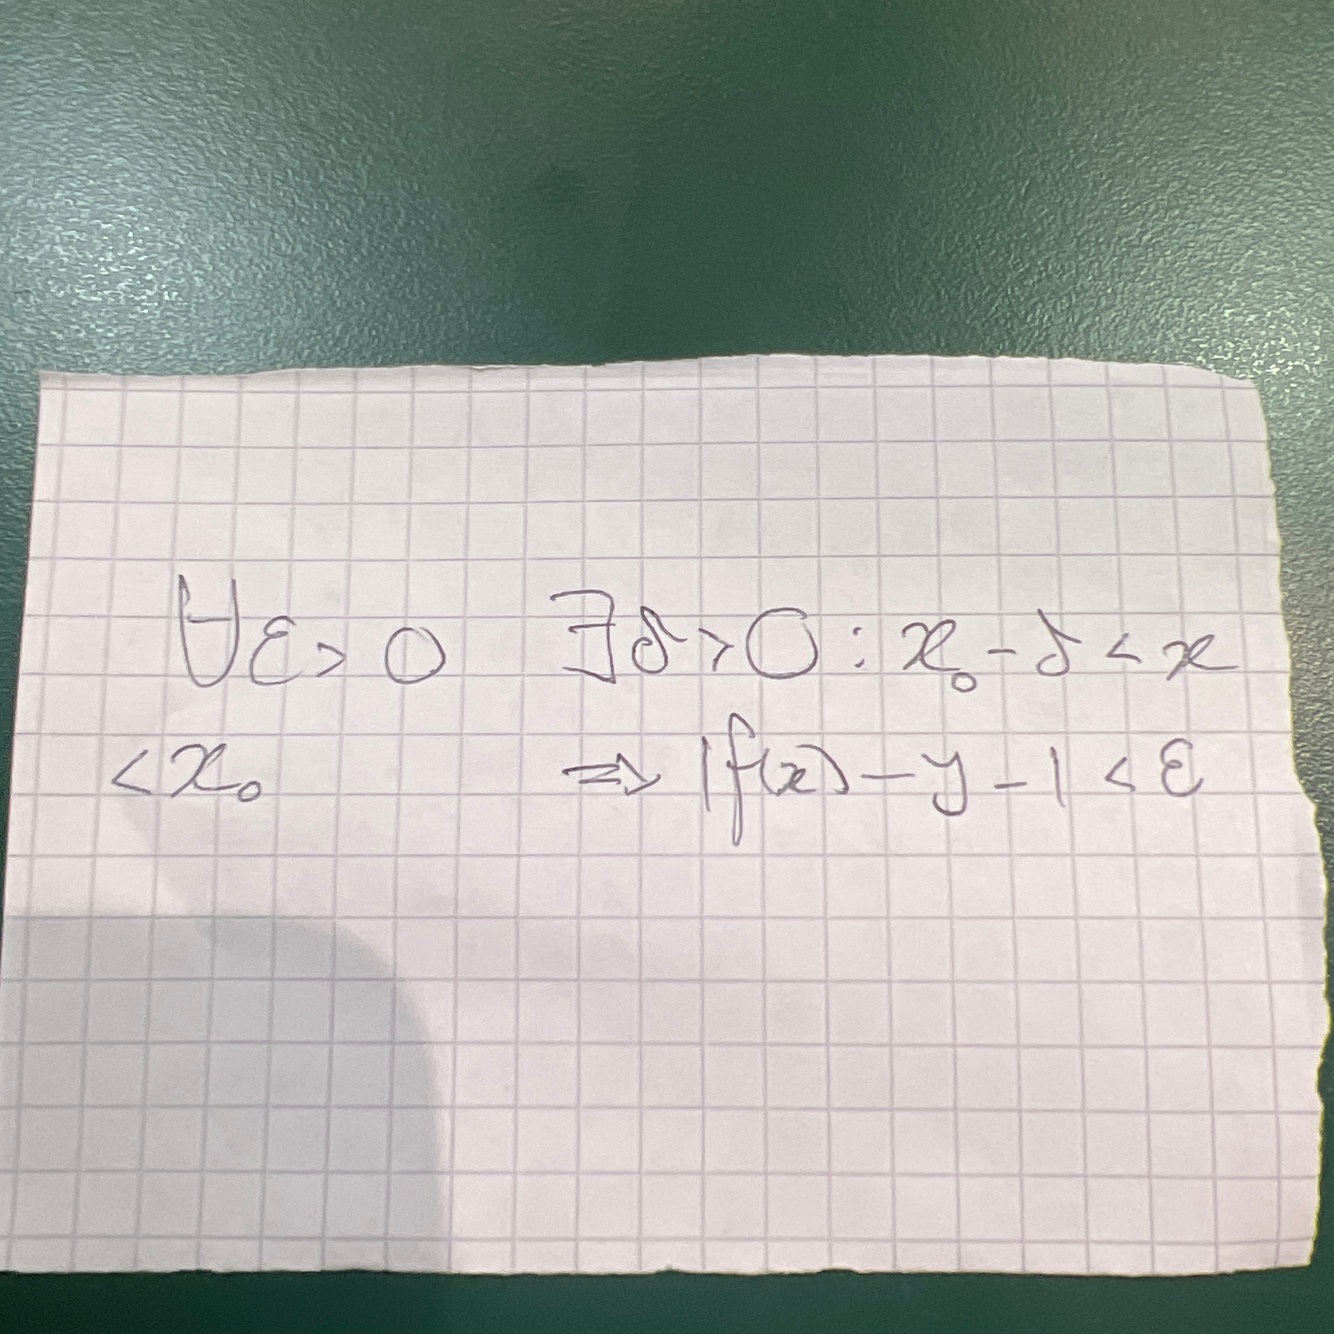 ∀ε > 0 ∃δ > 0 : x₀ - δ < x
< x₀ ⇒ |f(x) - y - | < ε